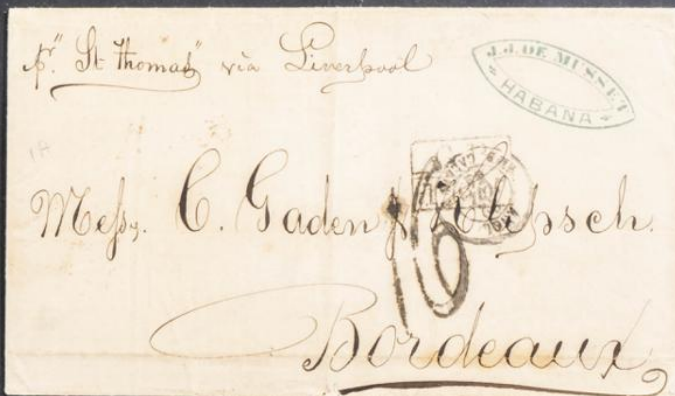 pr "St Thomas" via Liverpool
J. J. DE MUSSET
HABANA
Messrs. C. Gaden & Klipsch.
16
Bordeaux